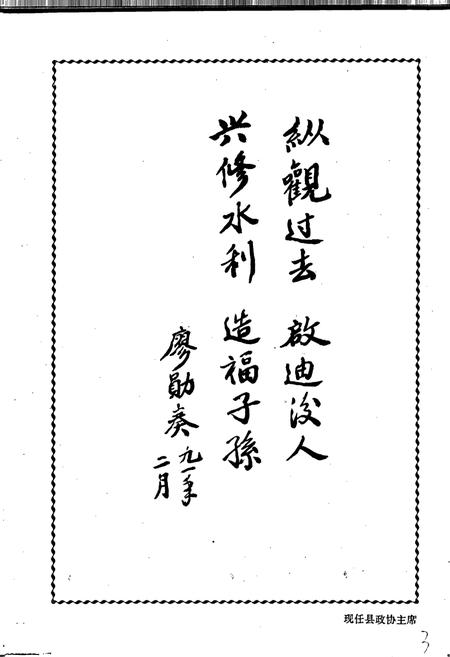 纵觀过去 啟迪後人
兴修水利 造福子孫
廖勋奏 九一年
二月
现任县政协主席
3